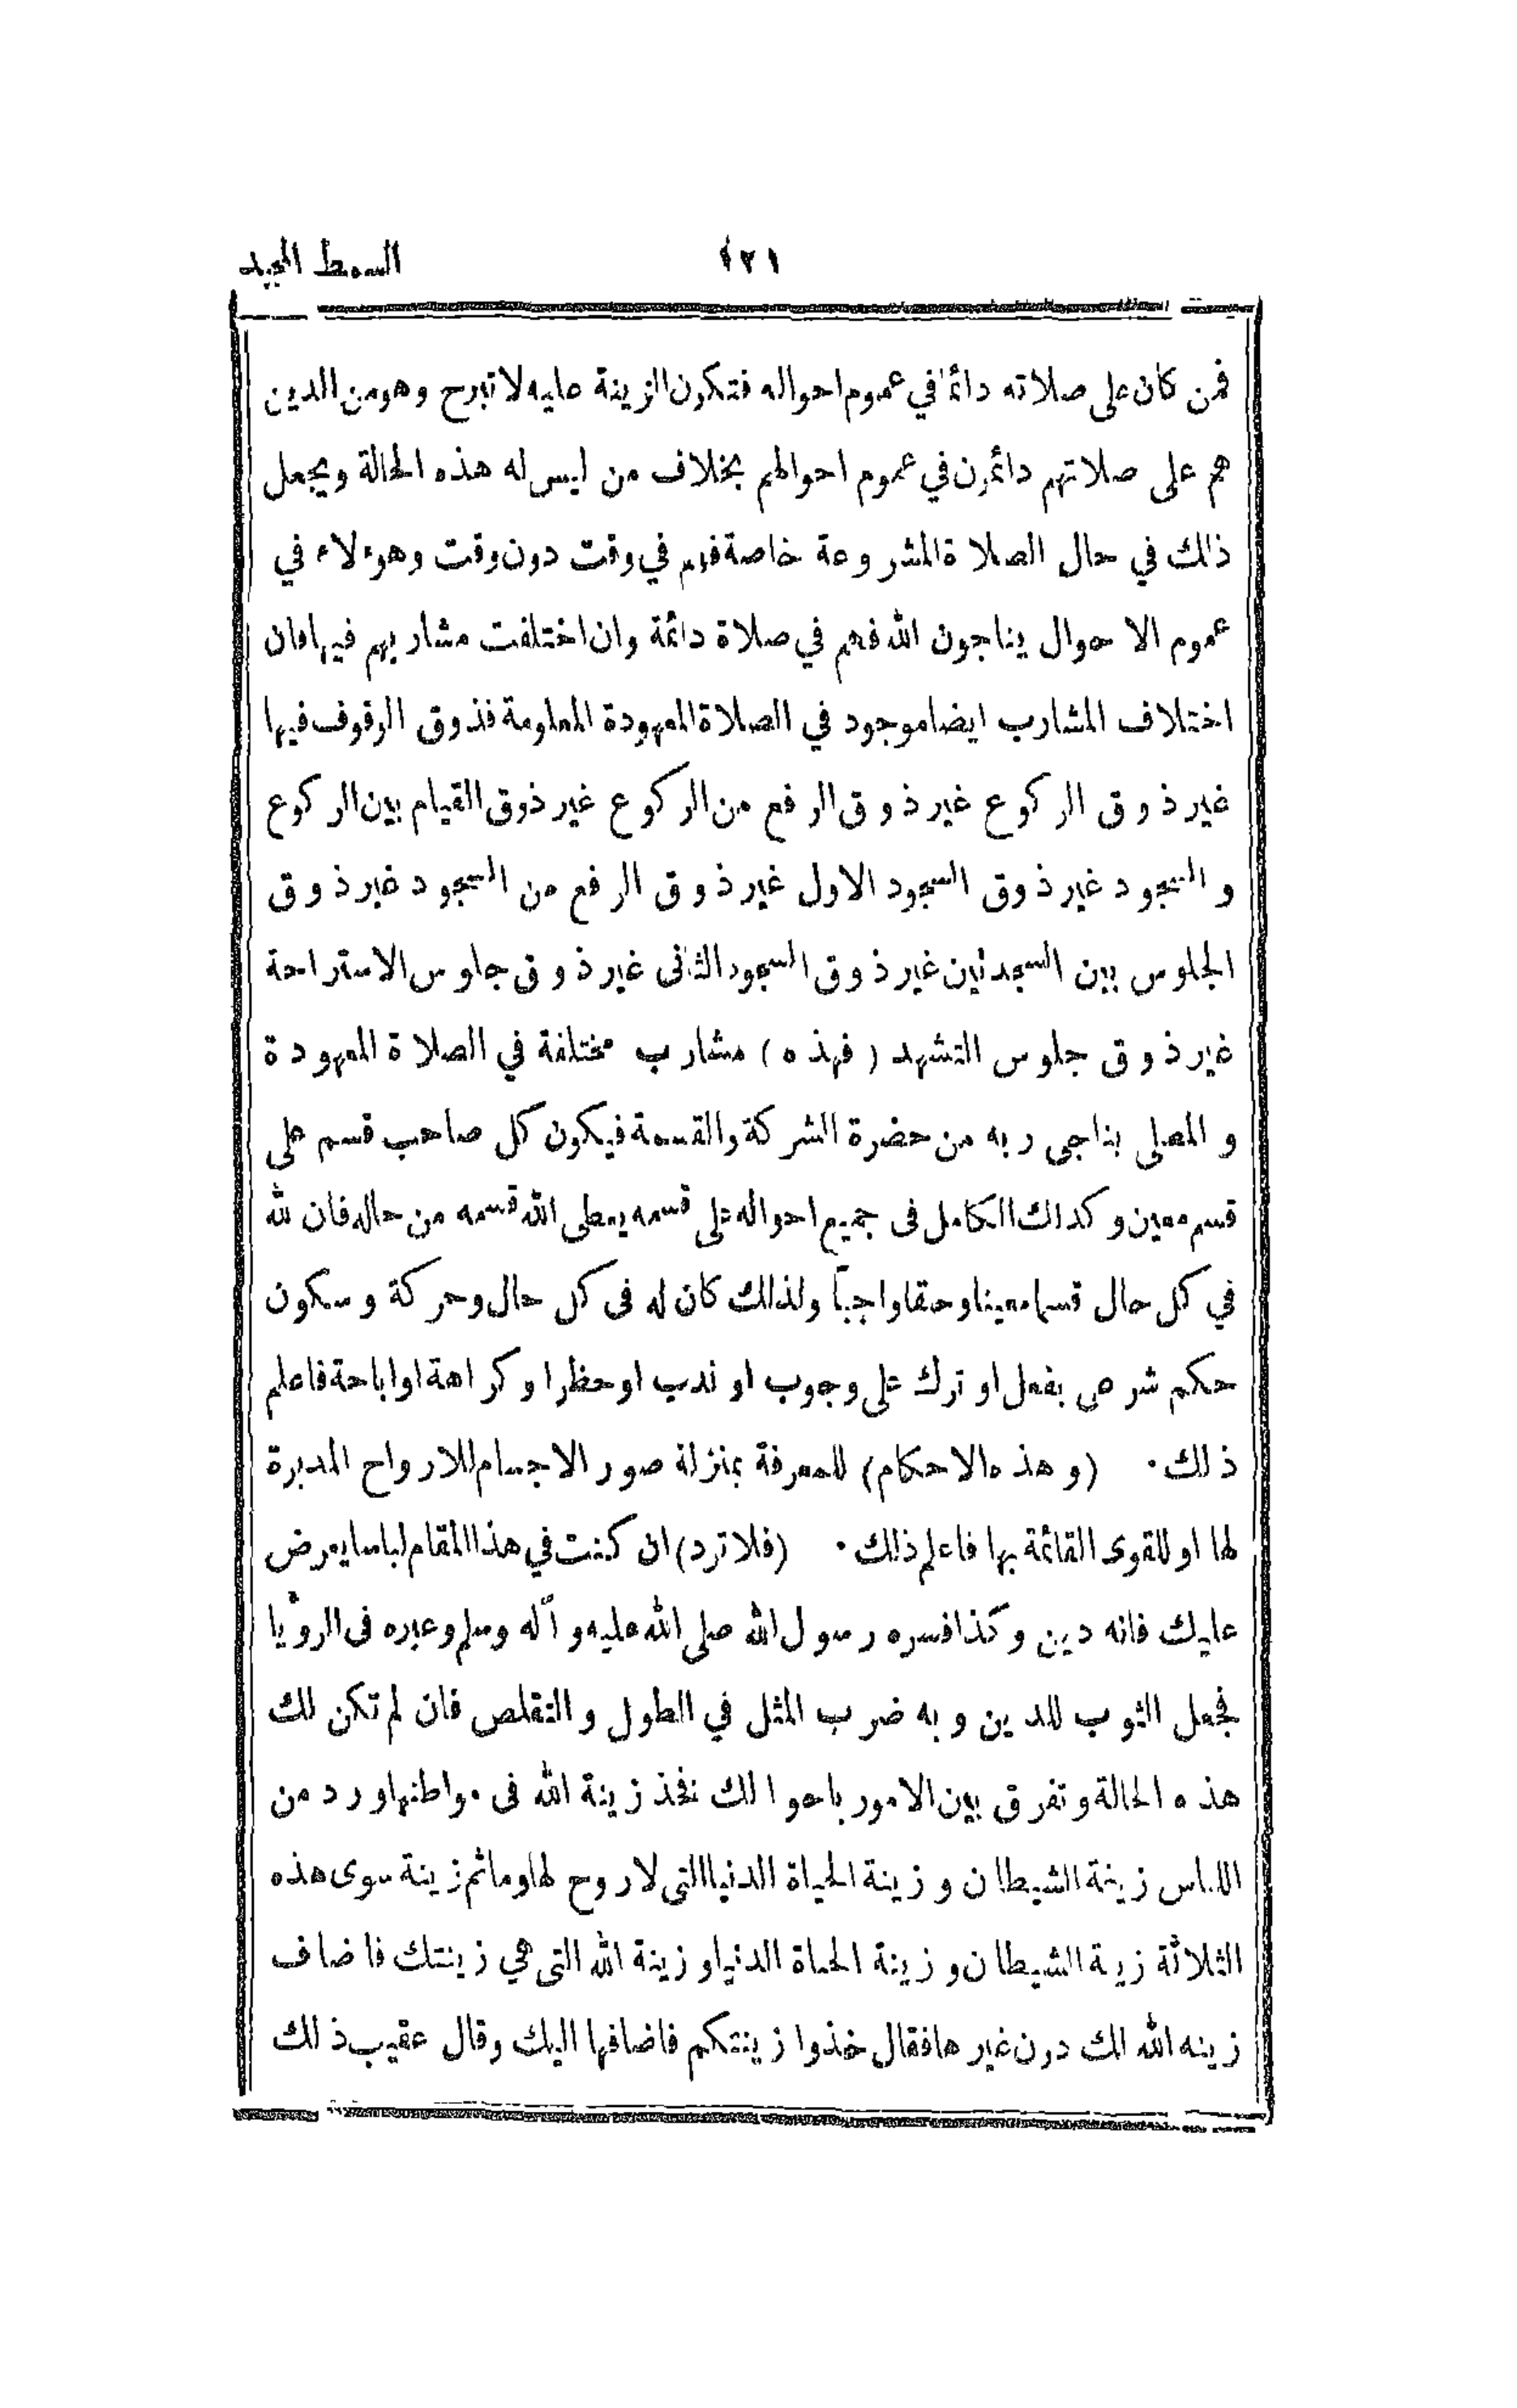 السمط المجيد
﴿٢١﴾
فمن كان على صلاته دائما في عموم احواله فتكون الزينة عليه لا تبرح وهو من الذين
هم على صلاتهم دائمون في عموم احوالهم بخلاف من ليس له هذه الحالة ويجعل
ذلك في حال الصلاة المشروعة خاصة فهم في وقت دون وقت وهؤلاء في
عموم الاحوال يناجون الله فهم في صلاة دائمة وان اختلفت مشاربهم فيها فان
اختلاف المشارب ايضا موجود في الصلاة المعهودة المعلومة فذوق الوقوف فيها
غير ذوق الركوع غير ذوق الرفع من الركوع غير ذوق القيام بين الركوع
والسجود غير ذوق السجود الاول غير ذوق الرفع من السجود غير ذوق
الجلوس بين السجدتين غير ذوق السجود الثانى غير ذوق جلوس الاستراحة
غير ذوق جلوس التشهد (فهذه) مشارب مختلفة في الصلاة المعهودة
والمصلى يناجى ربه من حضرة الشركة والقسمة فيكون كل صاحب قسم على
قسم معين وكذلك الكامل فى جميع احواله على قسمه يعطى الله قسمه من حاله فان لله
في كل حال قسما معينا وحقا واجباً ولذلك كان له فى كل حال وحركة وسكون
حكم شرعى بفعل او ترك على وجوب او ندب او حظر او كراهة او اباحة فاعلم
ذلك٠ (وهذه الاحكام) للمعرفة بمنزلة صور الاجسام للارواح المدبرة
لها او للقوى القائمة بها فاعلم ذلك٠ (فلا ترد) ان كنت في هذا المقام لباسا يعرض
عليك فانه دين وكذا فسره رسول الله صلى الله عليه وآله وسلم وعبره فى الرؤيا
فجعل الثوب للدين وبه ضرب المثل في الطول والتقلص فان لم تكن لك
هذه الحالة وتفرق بين الامور باحوالك فخذ زينة الله فى مواطنها ورد من
اللباس زينة الشيطان وزينة الحياة الدنيا التى لا روح لها وما ثم زينة سوى هذه
الثلاثة زينة الشيطان وزينة الحياة الدنيا وزينة الله التى هي زينتك فاضاف
زينه الله لك دون غيرها فقال خذوا زينتكم فاضافها اليك وقال عقيب ذلك